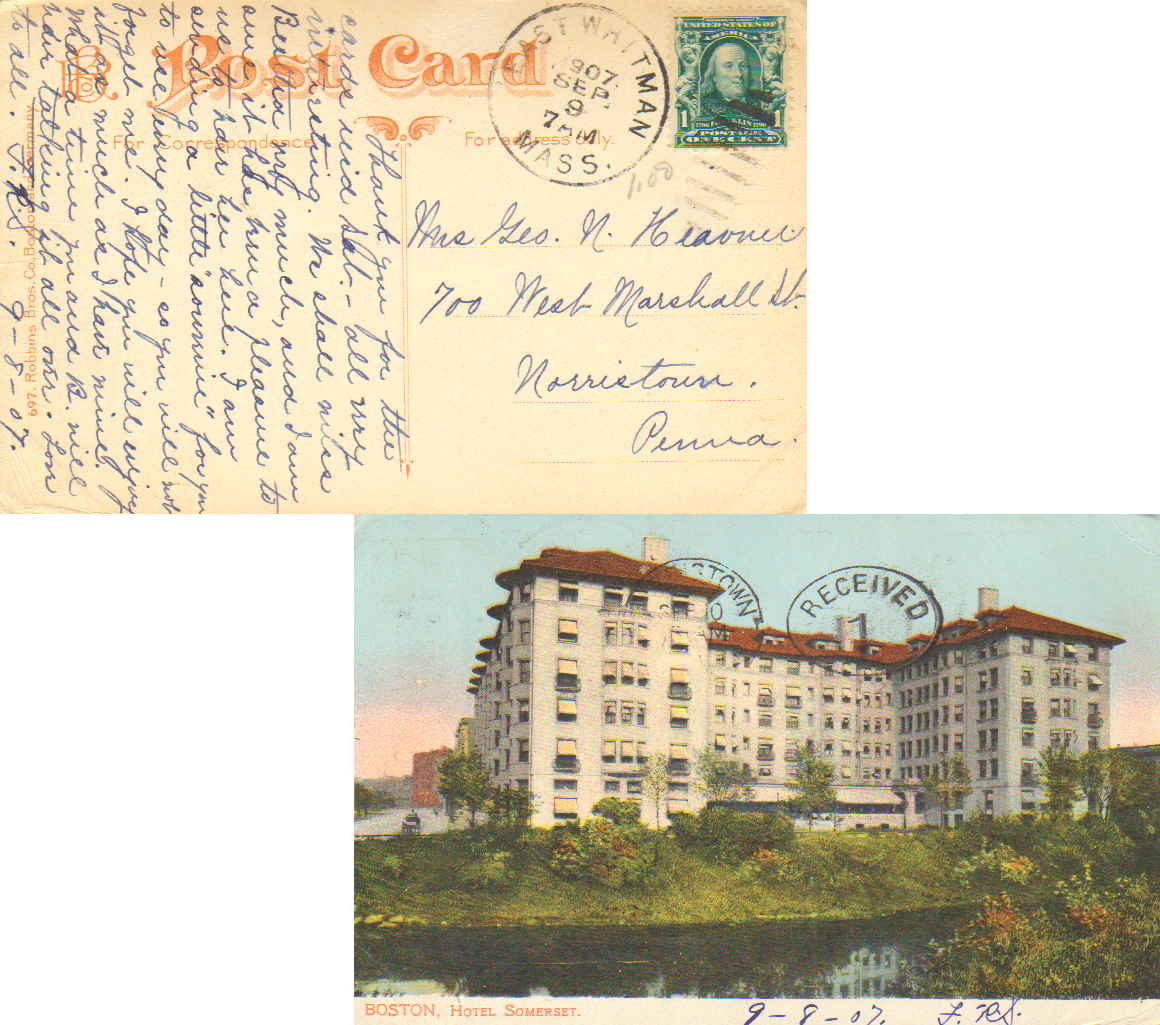 Post Card
For Correspondence.
For address only.
EAST WHITMAN
1907
SEP.
9
7 AM
MASS.
UNITED STATES OF
AMERICA
FRANKLIN
1 1
POSTAGE
ONE CENT
1.00
Mrs Geo. N. Heavner
700 West Marshall St.
Norristown.
Penna.
Thank you for the
cards rec'd Sat. - all very
interesting. We shall miss
Bertha very much, and I am
sure it has been a pleasure to
us to have her here. I am
sending a little "sourenire" for you
to use every day - so you will not
forget me. I hope you will enjoy
it as much as I have mine.
What a time you and B. will
have talking it all over. Love
to all. F. R. S. 9-8-07.
697. Robbins Bros. Co., Boston and Germany
TOWN
RECEIVED
1
BOSTON, HOTEL SOMERSET.
9-8-07. F. R. S.